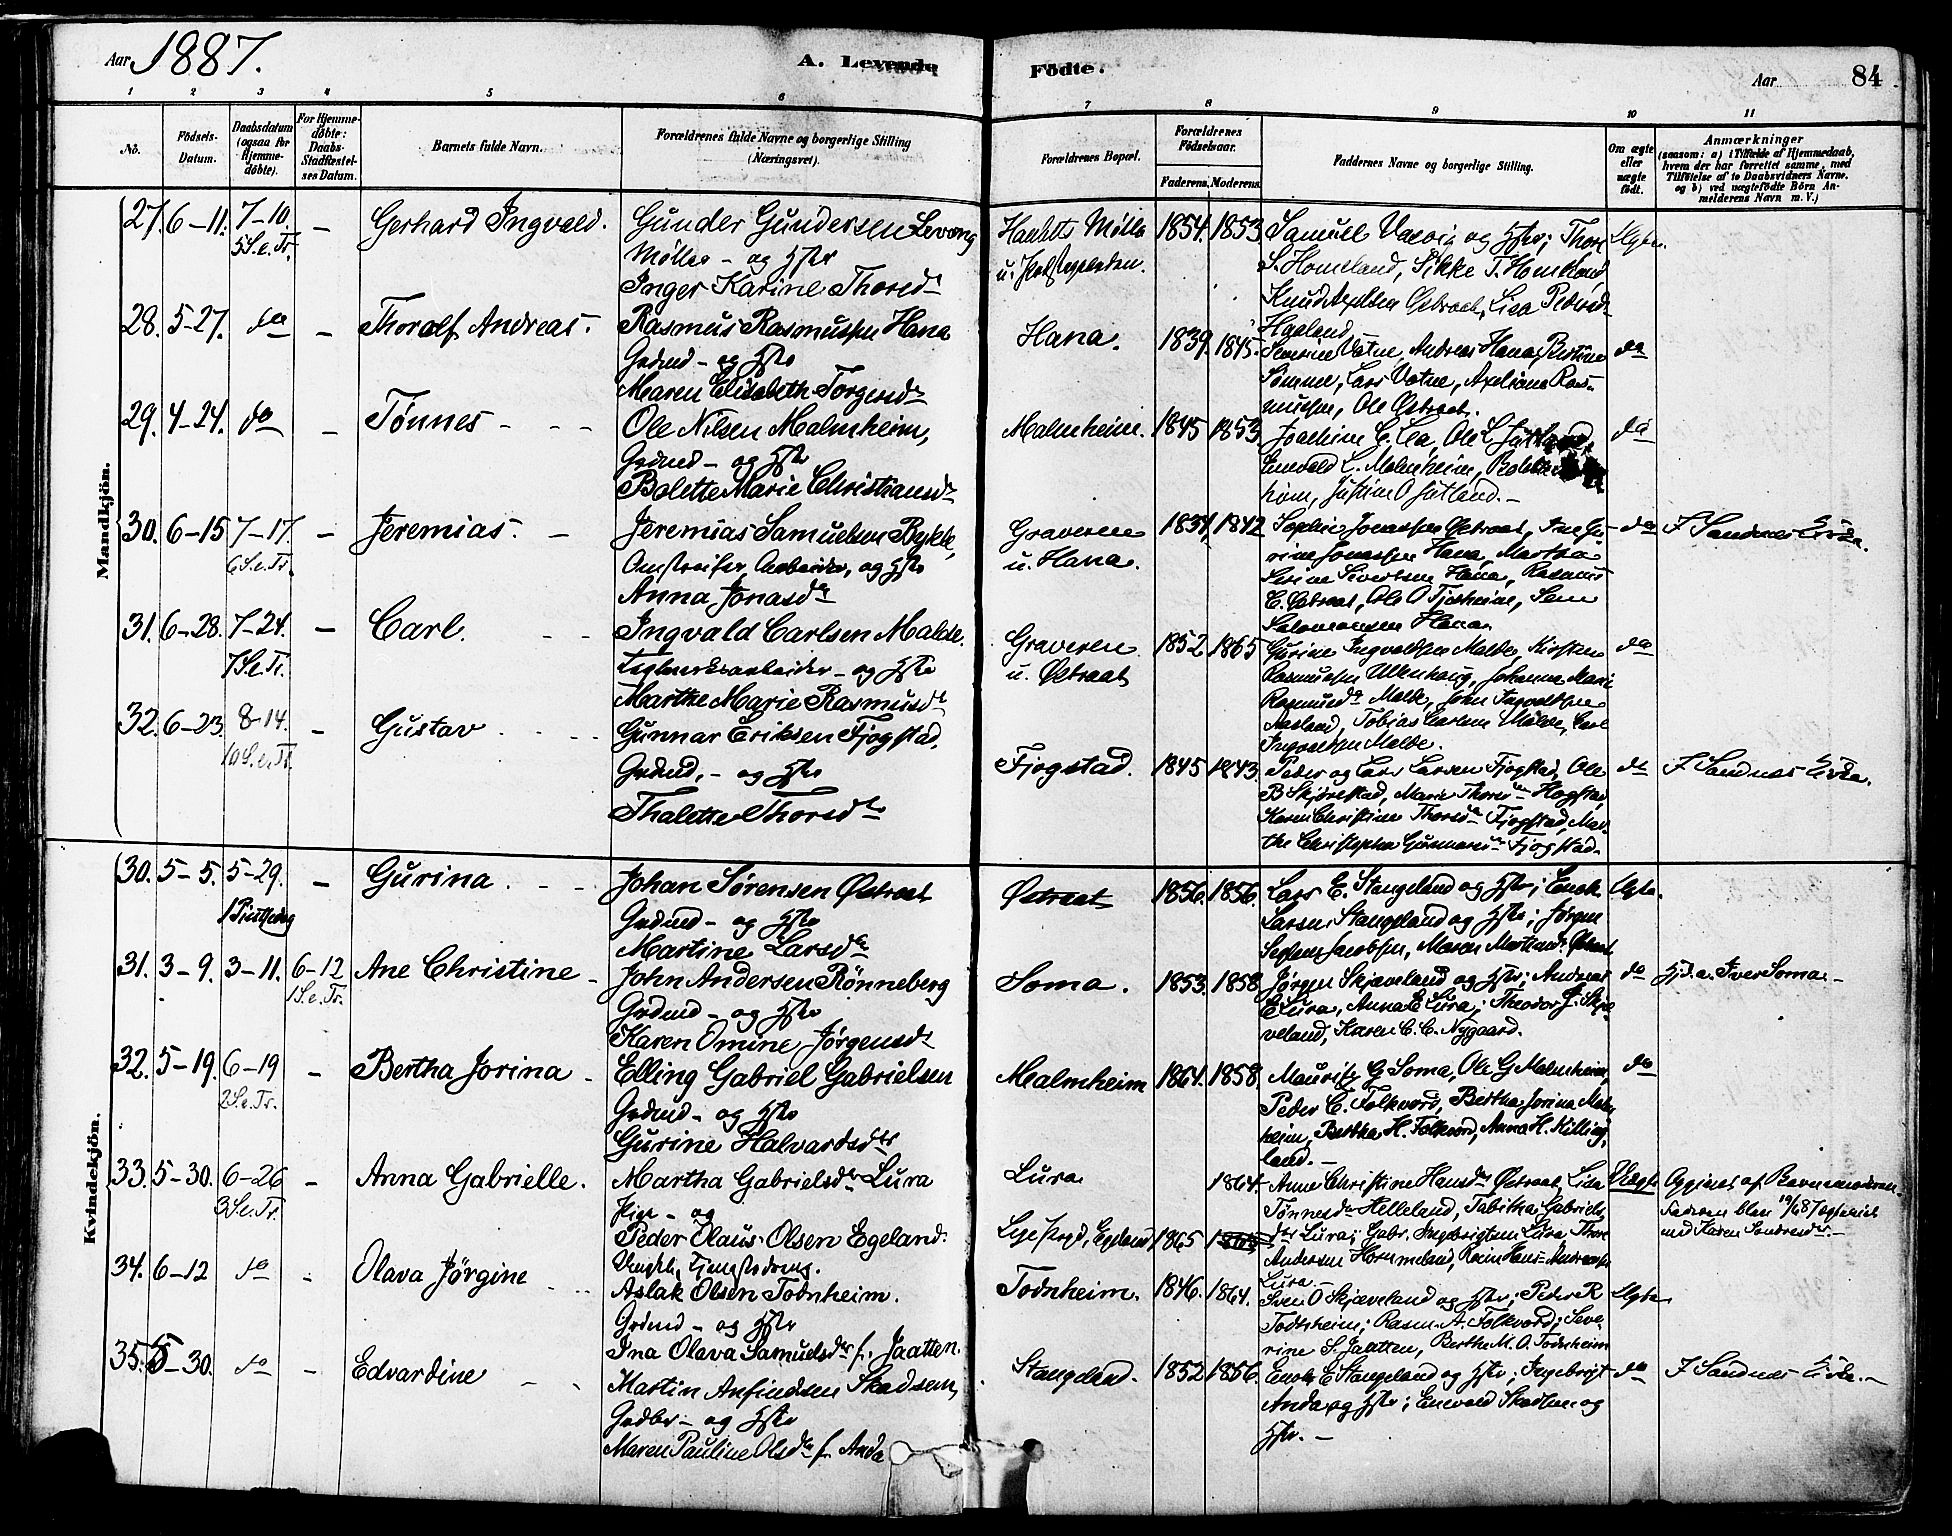 Aar 1887. A. Levende Födte. Aar 84
1 2 3 4 5 6 7 8 9 10 11
No.
Födsels-
Datum.
Daabsdatum
(ogsaa for
Hjemme-
döbte).
For Hjemme-
döbte:
Daabs-
Stadfæstel-
ses Datum.
Barnets fulde Navn.
Forældrenes fulde Navne og borgerlige Stilling
(Næringsvei).
Forældrenes Bopæl.
Forældrenes
Födselsaar.
Faderens. Moderens.
Faddernes Navne og borgerlige Stilling.
Om ægte
eller
uægte
födt.
Anmærkninger
(saasom: a) i Tilfælde af Hjemmedaab,
hvem der har forrettet samme, med
Tilföielse af to Daabsvidners Navne.
og b) ved uægtefödte Börn An-
melderens Navn m. V.)
Mandkjön.
27. 6-11. 7-10. 5 S.e.Tr. - Gerhard Ingvald.
Gunder Gundersen Levang
Møller - og Hstr
Inger Karine Thorsdr
Møllo
1854. 1853
Samuel og Hstr; Thore
S. Homeland, Sikke T. Homeland
Knud Axelsen Østraat, Lisa Pedersd.
Høeland
Ægte.
28. 5-27. do - Thoralf Andreas.
Rasmus Rasmussen Hana
Grdmd - og Hstr
Maren Elisabeth Torgersdr
Hana.
1839. 1845.
Severine Vatne, Andreas Hana, Bertine
Sømme, Lars Vatne, Axeliane Ras-
mussen, Ole Østraat.
do
29. 4-24. do - Tønnes
Ole Nilsen Malmheim,
Grdmd - og Hstr
Bolette Marie Christiansdr
Malmheim.
1845 1853
Joachim C. Lea, Ole L.
Enevald L. Malmheim,
Justine O Jutland.-
do
30. 6-15 7-17 6 S.e.Tr. - Jeremias.
Jeremias Samuelsen Bykle,
Arbeider, og Hstr
Anna Jonasdr
Graveren
u. Hana.
1834, 1842
Jonassen Østraat,
rine Jonassen Hana, Martha
Serine Sivertsen Hana, Rasmus
E. Østraat, Ole O Tjesheim, Sem
Salomonsen Hana
do
I Sandnes Kirke.
31. 6-28. 7-24. 7 S.e.Tr. - Carl.
Ingvald Carlsen Malde.
Teglverksarbeider - og Hstr
Marthe Marie Rasmusdr
Graveren
u. Østraat
1852 1865
Gurine Ingvaldsen Malde, Kirsten
Rasmussen Ullenhaug, Johanne Marie
Rasmusdr Malde, John Ingvaldsen
Aasland, Tobias Carlsen Malde, Carl
Ingvaldsen Malde.
do
32. 6-23 8-14. 10 S.e.Tr. - Gustav
Gunnar Eriksen Fjogstad.
Grdmd, - og Hstr
Thalette Thorsdr
Fjogstad.
1845 1843
Peder og Lars Larsen Fjogstad, Ole
B Skjørestad, Marie Thorsdr Hogstad,
Karen Christine Thorsdr Fjogstad, Mar-
the Christophea Gunnarsdr Fjogstad.
do
I Sandnes Kirke.
Kvindekjön.
30. 5-5. 5-29. - Gurina
Johan Sørensen Østraat
Grdmd - og Hstr
Martine Larsdr
Østraat
1856. 1856.
Lars E. Stangeland og Hstr; Enok
Larsen Stangeland og Hstr; Jørgen
Jacobsen, Maren
Ægte.
31. 3-9. 3-11. 6-12 1 S.e.Tr. Ane Christine
John Andersen Rønneberg
Grdmd - og Hstr
Karen Omine Jørgensdr
Soma.
1853. 1858.
Jørgen Skjæveland og Hstr; Andreas
E Lura, Anna E Lura; Theodor J. Skjæ-
veland, Karen C. C. Nygaard.
do
Hjd. a. Iver Soma.-
32. 5-19. 6-19 2 S.e.Tr. - Bertha Jorina
Elling Gabriel Gabrielsen
Grdmd - og Hstr
Gurine Halvardsdr
Malmheim
1864. 1858.
Mauritz G Soma, Ole G Malmheim,
Peder E. Folkvord, Bertha Jorina Malm-
heim, Bertha H. Folkvord, Anna H. Killing-
land.-
do
33. 5-30. 6-26 3 S.e.Tr. - Anna Gabrielle.
Martha Gabrielsdr Lura
Pige - og
Peder Olaus Olsen Egeland.
Ungkl, Tjenestedreng.
Lura
Egeland
1865 1864.
Anne Christine Hansdr Østraat, Lisa
Tønnesdr Helleland, Tabitha Gabriels-
dr Lura; Gabr. Ingebrigtsen Lura, Thore
Andersen Hommeland, Hans Andreas
Lura.-
Uægte
Opgivet af Barnemoderen.
Faderen blev 19/6 87 ægteviet
med Karen
34. 6-12 do - Olava Jørgine
Aslak Olsen Todnheim.
Grdmd - og Hstr
Ina Olava Samuelsdr f. Jaatten.
Todnheim.
1846. 1864.
Sven O Skjæveland og Hstr; Peder R
Todnheim; Rasm. A. Folkvord; Seve-
rine S. Jaatten, Berthe M. O. Todnheim
Ægte
35. 5-30. do - Edvardine
Martin Anfindsen Skadsem,
Grdbr - og Hstr
Maren Pauline Olsdr f. Anda
Stangeland.
1852 1856.
Enok E Stangeland og Hstr; Ingebrigt
Anda og Hstr; Enevald Skadsem og
Hstr.-
do
I Sandnes Kirke.-